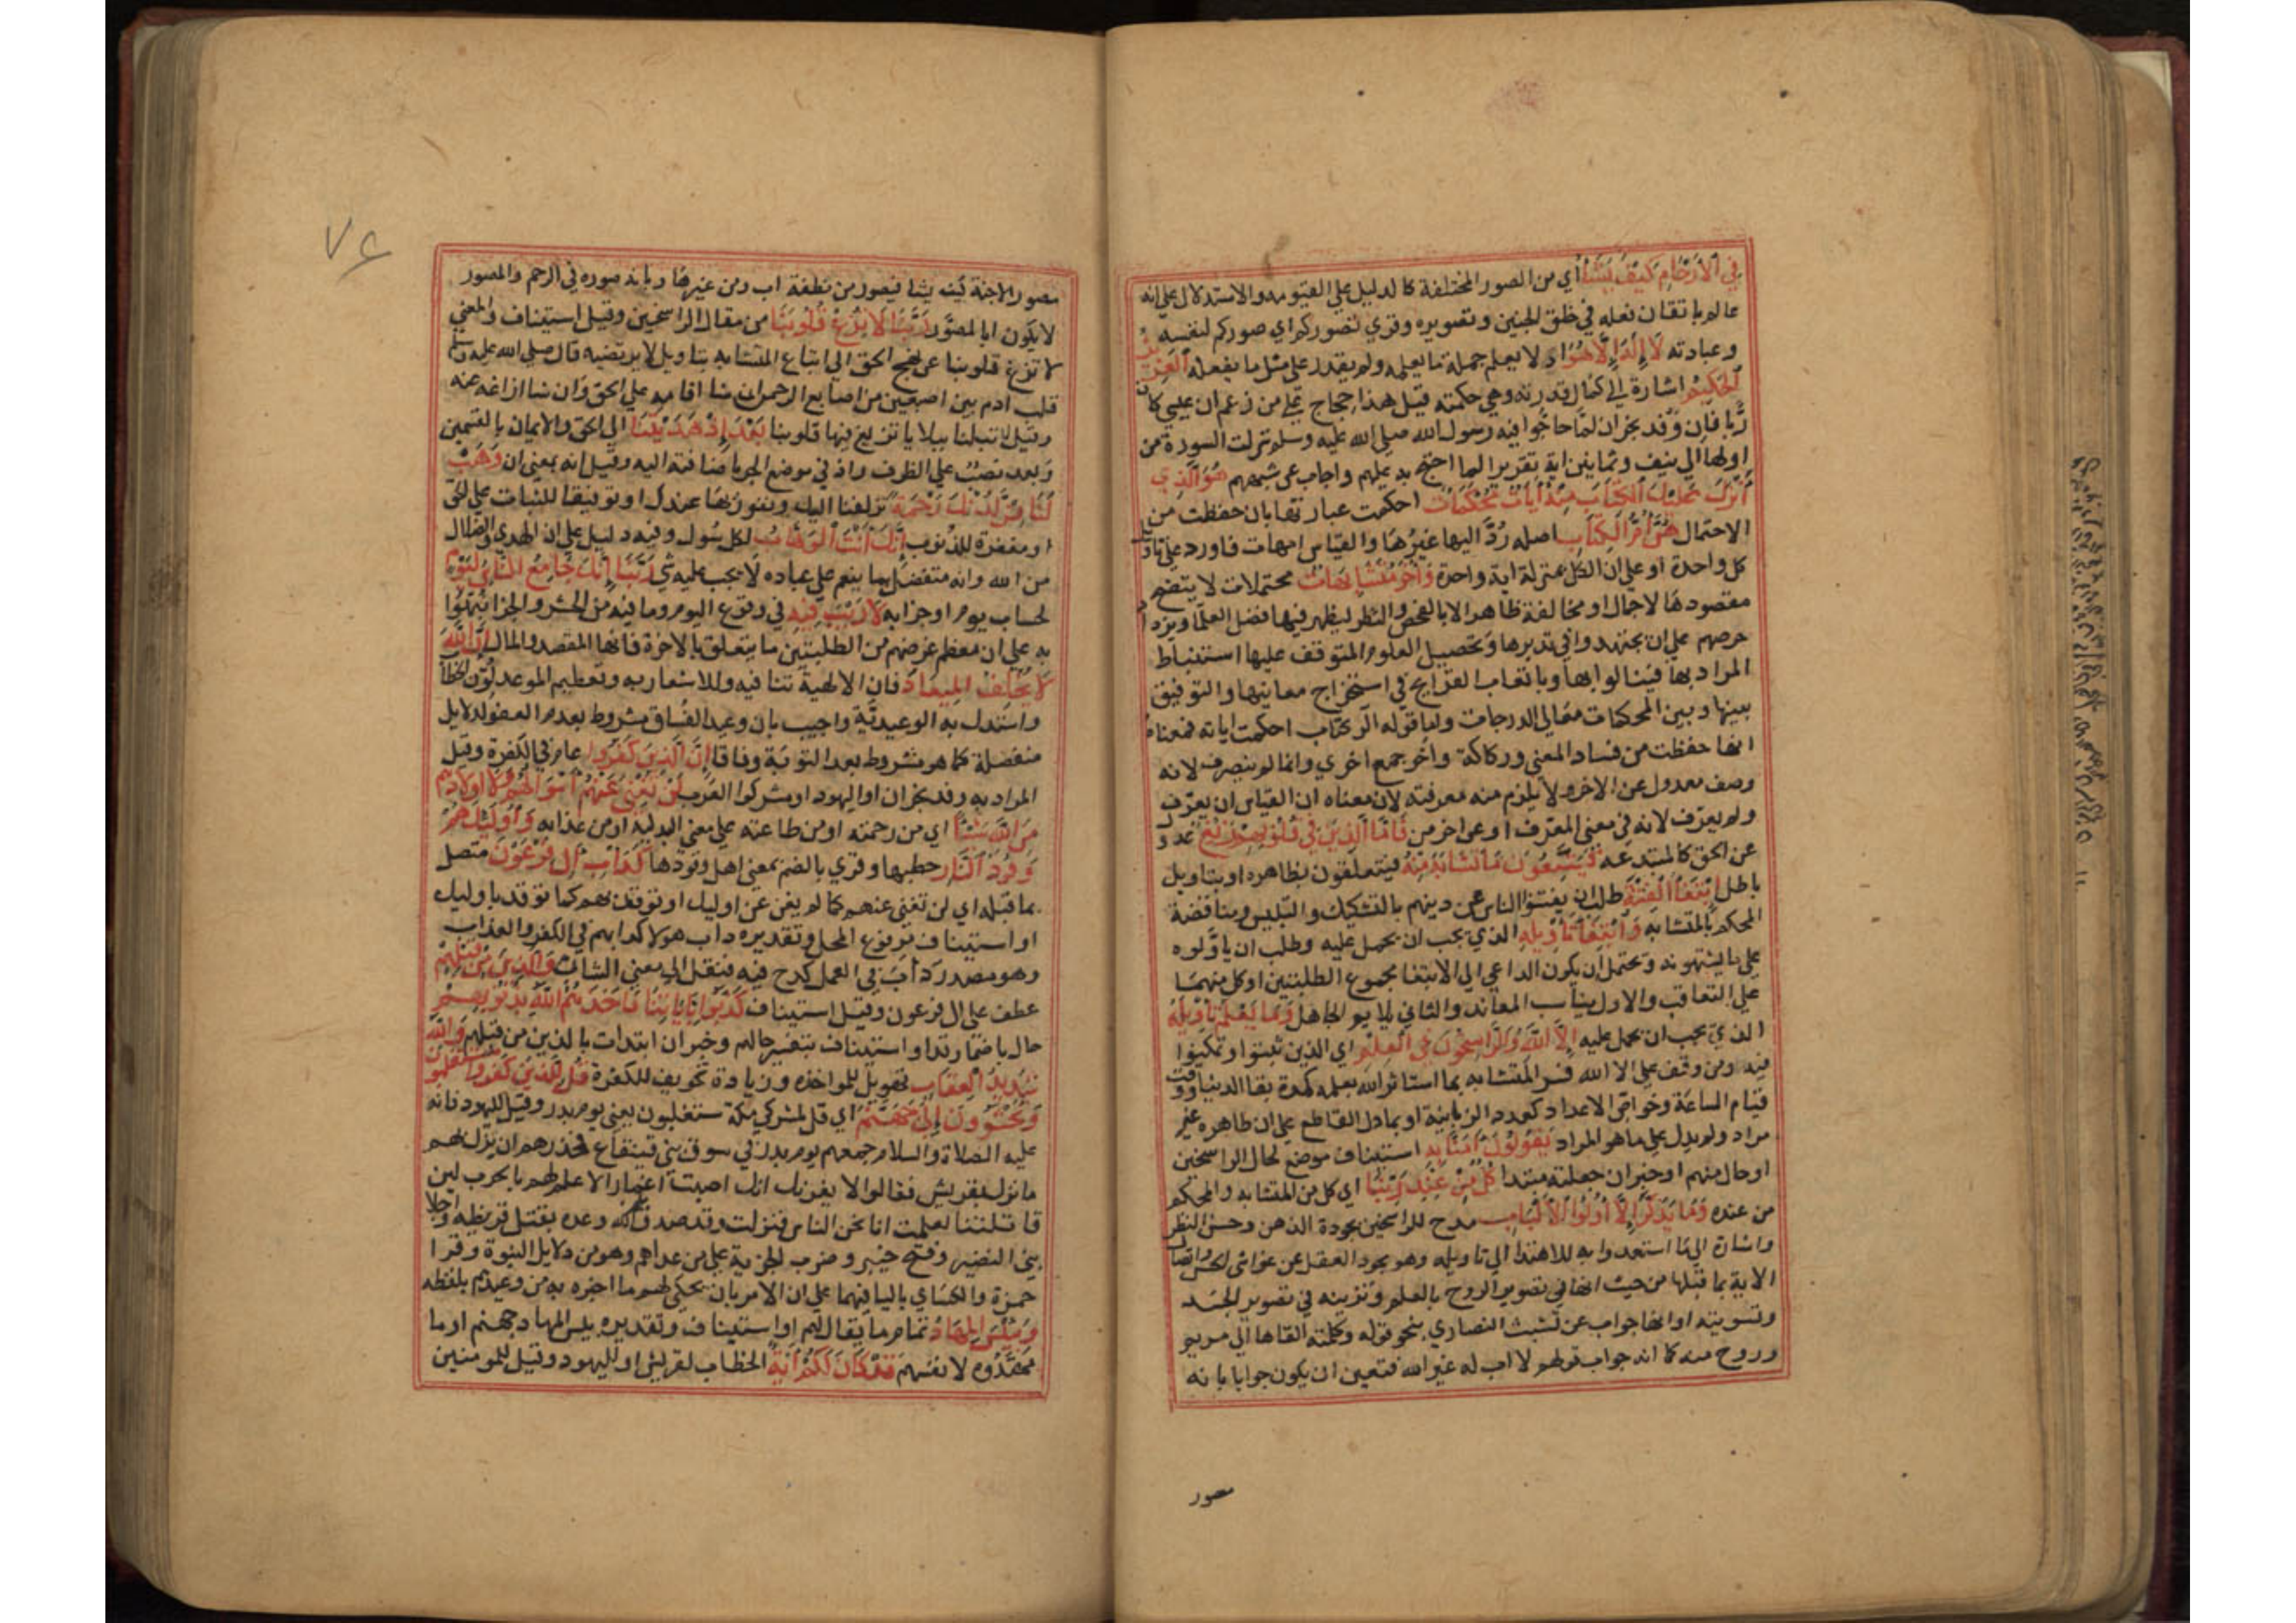 في الارحام كيف يشاء اي من الصور المختلفة كالدليل على القيومه والاستدلال على انه
عالم باتقان فعله في خلق الجنين وتصويره وقرى تصوركم اي صوركم لنفسه
وعبادته لا اله الا هو اذ لا يعلم جملة ما يعلمه ولم يقدر على مثل ما يفعله العزيز
الحكيم اشارة الى كمال قدرته وهي حكمته قيل هذا حجاج على من زعم ان عيسى كان
ربا فان وفد نجران لما حاجوا فيه رسول الله صلى الله عليه وسلم نزلت السورة من
اولها الى نيف وثمانين اية تقريرا لما احتج به عليهم واجاب عن شبههم هو الذي
انزل عليك الكتاب منه ايات محكمات احكمت عبارتها بان حفظت من
الاحتمال هن ام الكتاب اصله رد اليها غيرها والقياس امهات فاورد على تاويل
كل واحدة او على ان الكل بمنزلة اية واحدة واخر متشابهات محتملات لا يتضح
مقصودها لاجمال او مخالفة ظاهر الا بالفحص والنظر ليظهر فيها فضل العلما ويزداد
حرصهم على ان يجتهدوا في تدبرها وتحصيل العلوم المتوقف عليها استنباط
المراد بها فينالوا بها وباتعاب القرائح في استخراج معانيها والتوفيق
بينها وبين المحكمات معالي الدرجات واما قوله الر كتاب احكمت اياته فمعناه
انها حفظت من فساد المعنى وركاكة واخر جمع اخرى وانما لم ينصرف لانه
وصف معدول عن الاخر ولا يلزم منه معرفته لان معناه ان القياس ان يعرف
ولم يعرف لانه في معنى المعرف او عن اخر من فاما الذين في قلوبهم زيغ عدول
عن الحق كالمبتدعه فيتبعون ما تشابه منه فيتعلقون بظاهره او بتاويل
باطل ابتغا الفتنة طلب ان يفتنوا الناس عن دينهم بالتشكيك والتلبيس ومناقضة
المحكم بالمتشابه وابتغا تاويله الذي يجب ان يحمل عليه وطلب ان ياولوه
على ما يشتهونه ويحتمل ان يكون الداعي الى الابتغا مجموع الطلبتين او كل منهما
على التعاقب والاول يناسب المعاند والثاني يلايم الجاهل وما يعلم تاويله
الذي يجب ان يحمل عليه الا الله والراسخون في العلم اي الذين ثبتوا وتمكنوا
فيه ومن وقف على الا الله فسر المتشابه بما استاثر الله بعلمه كمدة بقا الدنيا ووقت
قيام الساعة وخواص الاعداد كعدد الزبانية او بما دل القاطع على ان ظاهره غير
مراد ولم يدل على ما هو المراد يقولون امنا به استيناف موضح لحال الراسخين
او حال منهم او خبر ان جعلته مبتدا كل من عند ربنا اي كل من المتشابه والمحكم
من عنده وما يذكر الا اولوا الالباب مدح للراسخين بجودة الذهن وحسن النظر
واشارة الى ما استعدوا به للاهتدا الى تاويله وهو تجرد العقل عن غواشي الحس واتصال
الاية بما قبلها من حيث انها في تصوير الروح بالعلم وتزيينه في تصوير الجسد
وتسويته او انها جواب عن تشبث النصارى بنحو قوله وكلمته القاها الى مريم
وروح منه كما انه جواب قولهم لا اب له غير الله فتعين ان يكون جوابا بانه
مصور
٧٤
مصور الاجنة كيف يشا فيصور من نطفة اب ومن غيرها وبانه صوره في الرحم والمصور
لا يكون ابا لمصور ربنا لا تزغ قلوبنا من مقال الراسخين وقيل استيناف والمعنى
لا تزغ قلوبنا عن نهج الحق الى اتباع المتشابه بتاويل لا يرتضيه قال صلى الله عليه وسلم
قلب ادم بين اصبعين من اصابع الرحمن ان شا اقامه على الحق وان شا ازاغه عنه
وقيل لا تبلنا ببلايا تزيغ فيها قلوبنا بعد اذ هديتنا الى الحق والايمان بالقسمين
وبعد نصب على الظرف واذ في موضع الجر باضافته اليه وقيل انه بمعنى ان وهب
لنا من لدنك رحمة تزلفنا اليك ونفوز بها عندك او توفيقا للثبات على الحق
او مغفرة للذنوب انك انت الوهاب لكل سول وفيه دليل على ان الهدى والضلال
من الله وانه متفضل بما ينعم على عباده لا يجب عليه شي ربنا انك جامع الناس ليوم
لحساب يوم او جزايه لا ريب فيه في وقوع اليوم وما فيه من الحشر والجزا نبهوا
به على ان معظم غرضهم من الطلبتين ما يتعلق بالاخرة فانها المقصد والمال ان الله
لا يخلف الميعاد فان الالهية تنافيه وللاشعار به وتعظيم الموعد لون الخطاب
واستدل به الوعيدية واجيب بان وعيد الفساق مشروط بعدم العفو لدلايل
منفصلة كما هو مشروط بعدم التوبة وفاقا ان الذين كفروا عام في الكفرة وقيل
المراد به وفد نجران او اليهود او مشركوا العرب لن تغني عنهم اموالهم ولا اولادهم
من الله شيئا اي من رحمته او من طاعته على معنى البدلية او من عذابه واوليك هم
وقود النار حطبها وقرى بالضم بمعنى اهل وقودها كداب ال فرعون متصل
بما قبله اي لن تغنى عنهم كما لم يغن عن اوليك او توقد بهم كما توقد باوليك
او استيناف مرفوع المحل وتقديره داب هولا كدابهم في الكفر والعذاب
وهو مصدر داب في العمل كدح فيه فنقل الى معنى الشان والذين من قبلهم
عطف على ال فرعون وقيل استيناف كذبوا باياتنا فاخذهم الله بذنوبهم
حال باضمار قد او استيناف بتفسير حالهم وخبر ان ابتدات بالذين من قبلهم والله
شديد العقاب تهويل للمواخذه وزيادة تخويف للكفرة قل للذين كفروا ستغلبون
وتحشرون الى جهنم اي قل لمشركي مكة ستغلبون يعنى يوم بدر وقيل لليهود فانه
عليه الصلاة والسلام جمعهم يوم بدر في سوق بني قينقاع فحذرهم ان ينزل بهم
ما نزل بقريش فقالوا لا يغرنك انك اصبت اغمارا لا علم لهم بالحرب لين
قاتلتنا لعلمت انا نحن الناس فنزلت وقد صدق الله وعده بقتل قريظه واجلا
بني النضير وفتح خيبر وضرب الجزية على من عداهم وهو من دلايل النبوة وقرا
حمزة والكساي باليا فيهما على ان الامر بان يحكى لهم ما اخبره به من وعيدهم بلفظه
وبيس المهاد تمام ما يقال لهم او استيناف وتقديره بيس المهاد جهنم او ما
مهدوه لانفسهم قد كان لكم اية الخطاب لقريش او لليهود وقيل للمومنين